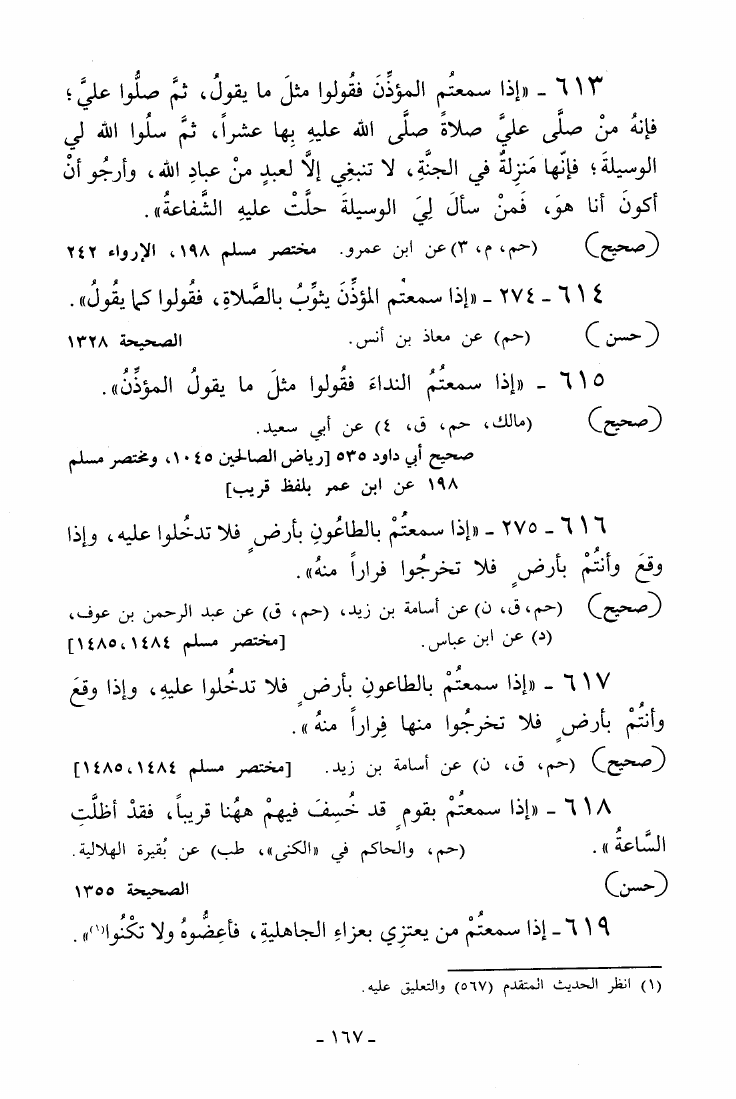 ٦١٣ - «إذا سمعتُم المؤذِّنَ فقُولوا مثلَ ما يقولُ، ثمَّ صلُّوا عليَّ؛
فإنهُ منْ صلَّى عليَّ صلاةً صلَّى الله عليهِ بِها عشراً، ثمَّ سلُوا الله لي
الوسيلةَ؛ فإنّها مَنزِلةٌ في الجنَّةِ، لا تنبغي إلَّا لعبدٍ منْ عبادِ الله، وأرجُو أنْ
أكونَ أنا هوَ، فَمنْ سألَ لِيَ الوسيلةَ حلَّتْ عليهِ الشَّفاعةُ».
(صحيح) (حم، م، ٣) عن ابن عمرو. مختصر مسلم ١٩٨، الإرواء ٢٤٢
٦١٤ - ٢٧٤ - «إذا سمعتُم المؤذِّنَ يثوِّبُ بالصَّلاةِ، فقُولوا كما يقُولُ».
(حسن) (حم) عن معاذ بن أنس. الصحيحة ١٣٢٨
٦١٥ - «إذا سمعتُمُ النداءَ فقُولوا مثلَ ما يقولُ المؤذِّنُ».
(صحيح) (مالك، حم، ق، ٤) عن أبي سعيد.
صحيح أبي داود ٥٣٥ [رياض الصالحين ١٠٤٥، ومختصر مسلم
١٩٨ عن ابن عمر بلفظ قريب]
٦١٦ - ٢٧٥ - «إذا سمعتُمْ بالطاعُونِ بأرضٍ فلا تدخُلوا عليه، وإذا
وقعَ وأنتُمْ بأرضٍ فلا تخرجُوا فراراً منهُ».
(صحيح) (حم، ق، ن) عن أسامة بن زيد، (حم، ق) عن عبد الرحمن بن عوف،
(د) عن ابن عباس. [مختصر مسلم ١٤٨٤، ١٤٨٥]
٦١٧ - «إذا سمعتُمْ بالطاعونِ بأرضٍ فلا تدخُلوا عليهِ، وإذا وقعَ
وأنتُمْ بأرضٍ فلا تخرجُوا منها فِراراً منهُ».
(صحيح) (حم، ق، ن) عن أسامة بن زيد. [مختصر مسلم ١٤٨٤، ١٤٨٥]
٦١٨ - «إذا سمعتُمْ بقومٍ قد خُسِفَ فيهمْ ههُنا قريباً، فقدْ أظلَّتِ
السَّاعةُ». (حم، والحاكم في «الكنى»، طب) عن بُقيرة الهلالية.
(حسن) الصحيحة ١٣٥٥
٦١٩ - إذا سمعتُمْ من يعتزِي بعزاءِ الجاهليةِ، فأعِضُّوهُ ولا تكْنُوا(١)».
(١) انظر الحديث المتقدم (٥٦٧) والتعليق عليه.
- ١٦٧ -